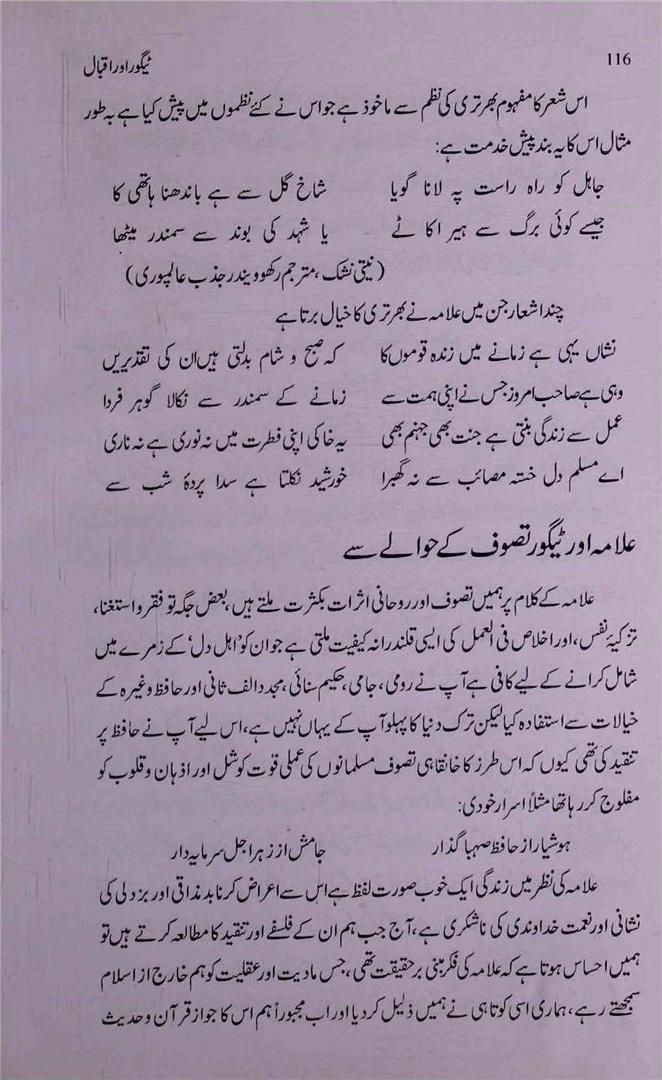 116
ٹیگور اور اقبال
اس شعر کا مفہوم بھرتری کی نظم سے ماخوذ ہے جو اس نے کئے نظموں میں پیش کیا ہے بہ طور
مثال اس کا یہ بند پیش خدمت ہے:
جاہل کو راہ راست پہ لانا گویا شاخ گل سے ہے باندھنا ہاتھی کا
جیسے کوئی برگ سے ہیرا کاٹے یا شہد کی بوند سے سمندر میٹھا
(نیتی شتک، مترجم رگھوویندر جذب عالمپوری)
چند اشعار جن میں علامہ نے بھرتری کا خیال برتا ہے
نشاں یہی ہے زمانے میں زندہ قوموں کا کہ صبح و شام بدلتی ہیں ان کی تقدیریں
وہی ہے صاحب امروز جس نے اپنی ہمت سے زمانے کے سمندر سے نکالا گوہر فردا
عمل سے زندگی بنتی ہے جنت بھی جہنم بھی یہ خاکی اپنی فطرت میں نہ نوری ہے نہ ناری
اے مسلم دل خستہ مصائب سے نہ گھبرا خورشید نکلتا ہے سدا پردۂ شب سے
علامہ اور ٹیگور تصوف کے حوالے سے
علامہ کے کلام پر ہمیں تصوف اور روحانی اثرات بکثرت ملتے ہیں، بعض جگہ تو فقر و استغنا،
تزکیۂ نفس، اور اخلاص فی العمل کی ایسی قلندرانہ کیفیت ملتی ہے جو ان کو 'اہل دل' کے زمرے میں
شامل کرانے کے لیے کافی ہے آپ نے رومی، جامی، حکیم سنائی، مجدد الف ثانی اور حافظ وغیرہ کے
خیالات سے استفادہ کیا لیکن ترک دنیا کا پہلو آپ کے یہاں نہیں ہے، اس لیے آپ نے حافظ پر
تنقید کی تھی کیوں کہ اس طرز کا خانقاہی تصوف مسلمانوں کی عملی قوت کو شل اور اذہان و قلوب کو
مفلوج کر رہا تھا مثلاً اسرار خودی:
ہوشیار از حافظ صہبا گذار جامش از زہر اجل سرمایہ دار
علامہ کی نظر میں زندگی ایک خوب صورت لفظ ہے اس سے اعراض کرنا بدمذاقی اور بزدلی کی
نشانی اور نعمت خداوندی کی ناشکری ہے، آج جب ہم ان کے فلسفے اور تنقید کا مطالعہ کرتے ہیں تو
ہمیں احساس ہوتا ہے کہ علامہ کی فکر مبنی بر حقیقت تھی، جس مادیت اور عقلیت کو ہم خارج از اسلام
سمجھتے رہے، ہماری اسی کوتاہی نے ہمیں ذلیل کر دیا اور اب مجبوراً ہم اس کا جواز قرآن و حدیث